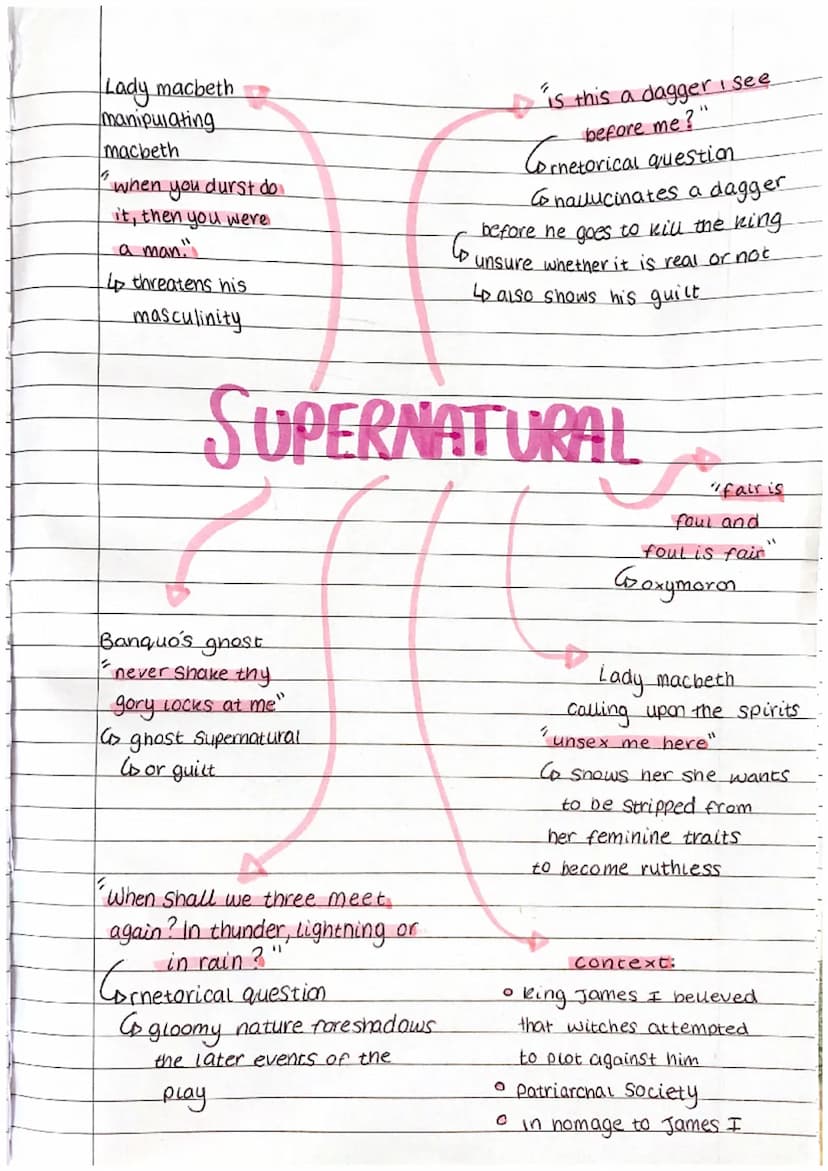 Lady macbeth
manipulating
macbeth
"when you durst do
it, then you were
a man."
↳ threatens his
masculinity
"is this a dagger i see
before me?"
↳ rhetorical question
↳ hallucinates a dagger
before he goes to kill the king
↳ unsure whether it is real or not
↳ also shows his guilt
SUPERNATURAL
"fair is
foul and
foul is fair"
↳ oxymoron
Banquo's ghost
"never shake thy
gory locks at me"
↳ ghost supernatural
↳ or guilt
Lady macbeth
calling upon the spirits
"unsex me here"
↳ shows her she wants
to be stripped from
her feminine traits
to become ruthless
"When shall we three meet
again? In thunder, lightning or
in rain?"
↳ rhetorical question
↳ gloomy nature foreshadows
the later events of the
play
context:
• King James I believed
that witches attempted
to plot against him
• Patriarchal Society
• in homage to James I